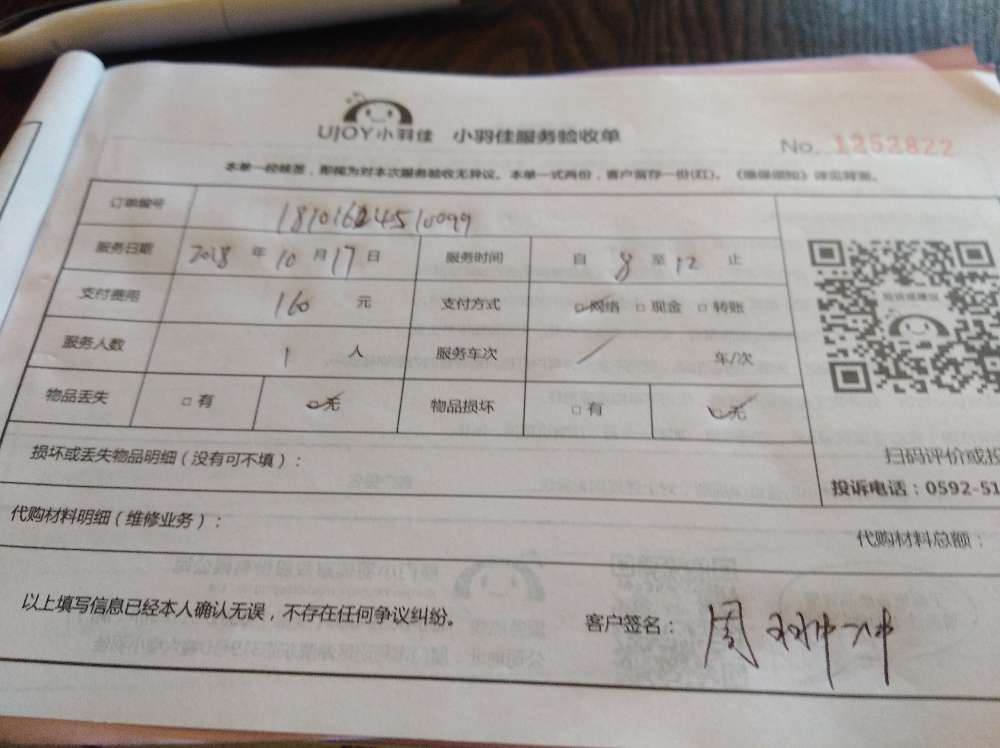 UJOY小羽佳 小羽佳服务验收单
No. 1252822
本单一经核签,即视为对本次服务验收无异议。本单一式两份,客户留存一份(红)。《维保须知》详见背面。
订单编号 18101624510099
服务日期 2018 年 10 月 17 日 服务时间 自 8 至 12 止
支付费用 160 元 支付方式 □网络 □现金 □转账
服务人数 1 人 服务车次 / 车/次
物品丢失 □有 □无 物品损坏 □有 □无
损坏或丢失物品明细(没有可不填):
扫码评价或投
投诉电话:0592-51
代购材料明细(维修业务):
代购材料总额:
以上填写信息已经本人确认无误,不存在任何争议纠纷。
客户签名:周